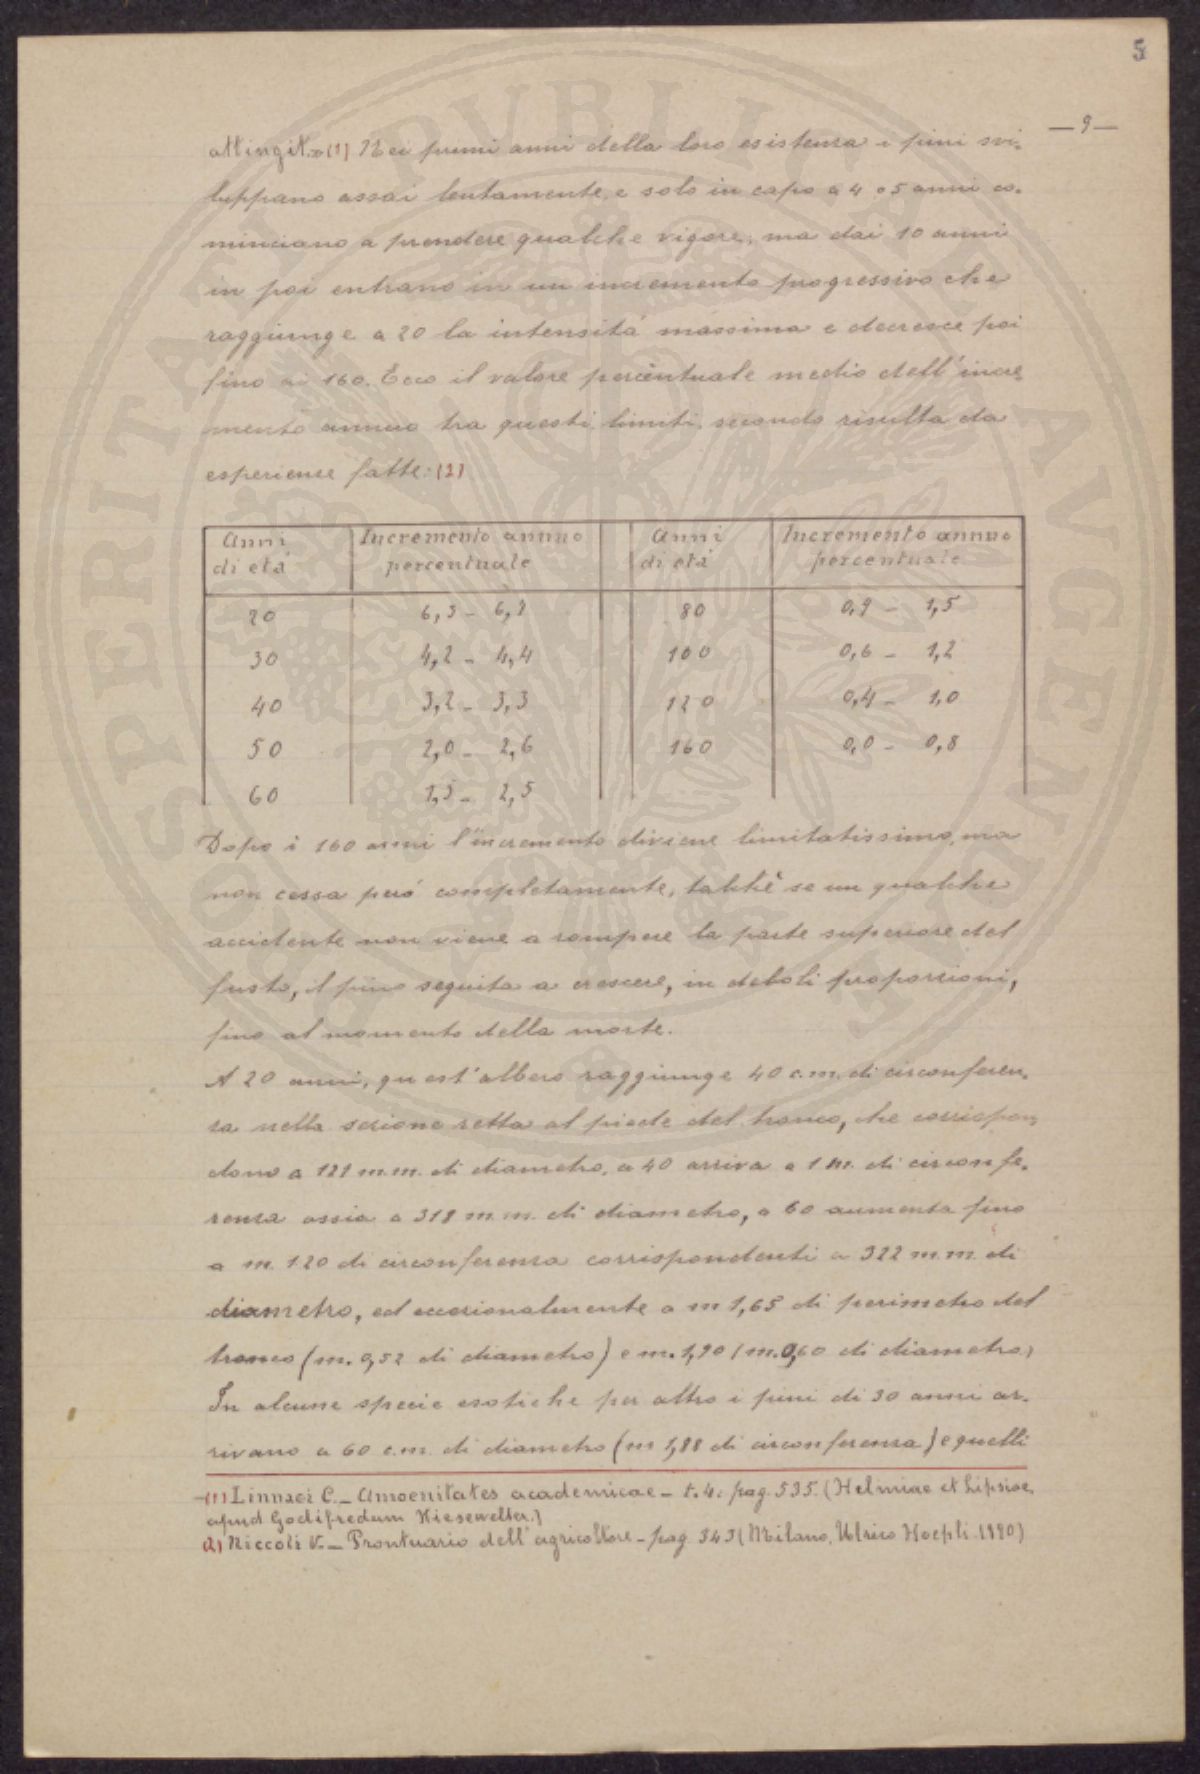 5
— 9 —
attingit.» (1) Nei primi anni della loro esistenza i pini svi-
luppano assai lentamente, e solo in capo a 4 o 5 anni co-
minciano a prendere qualche vigore; ma dai 10 anni
in poi entrano in un incremento progressivo che
raggiunge a 20 la intensitá massima e decresce poi
fino ai 160. Ecco il valore percentuale medio dell'incre-
mento annuo tra questi limiti, secondo risulta da
esperienze fatte: (2)
Anni di etá | Incremento annuo percentuale | Anni di etá | Incremento annuo percentuale
20 | 6,3 - 6,8 | 80 | 0,9 - 1,5
30 | 4,2 - 4,4 | 100 | 0,6 - 1,2
40 | 3,2 - 3,3 | 120 | 0,4 - 1,0
50 | 2,0 - 2,6 | 160 | 0,0 - 0,8
60 | 1,5 - 2,5
Dopo i 160 anni l'incremento diviene limitatissimo, ma
non cessa peró completamente, talchè se un qualche
accidente non viene a rompere la parte superiore del
fusto, il pino seguita a crescere, in deboli proporzioni,
fino al momento della morte.
A 20 anni, quest'albero raggiunge 40 c.m. di circonferen-
za nella sezione retta al piede del tronco, che corrispon-
dono a 127 m.m. di diametro, a 40 arriva a 1 m. di circonfe-
renza ossia a 318 m.m. di diametro, a 60 aumenta fino
a m. 1.20 di circonferenza corrispondenti a 322 m.m. di
diametro, ed eccezionalmente a m 1,65 di perimetro del
tronco (m. 0,52 di diametro) e m. 1,90 (m. 0,60 di diametro)
In alcune specie esotiche per altro i pini di 30 anni ar-
rivano a 60 c.m. di diametro (m 1,88 di circonferenza) e quelli
(1) Linnaei C. — Amoenitates academicae — t. 4: pag. 535. (Holmiae et Lipsiae,
apud Godifredum Kiesewetter.)
(2) Niccoli V. — Prontuario dell'agricoltore — pag. 343 (Milano, Ulrico Hoepli. 1890)
PROSPERITATI PVBLICAE AVGENDAE